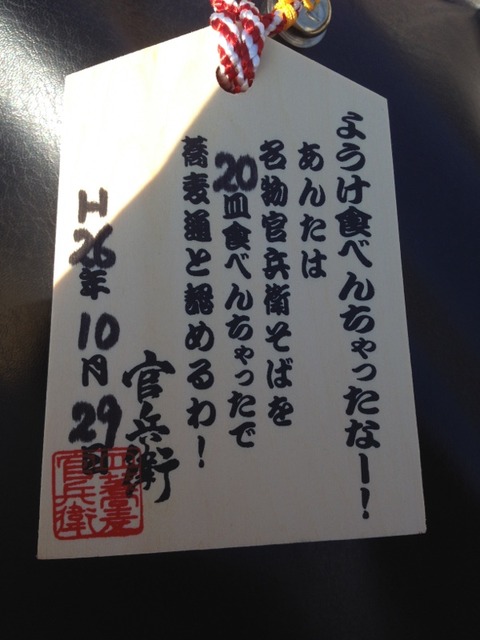 ようけ食べんちゃったなー!
あんたは
名物官兵衛そばを
20皿食べんちゃったで
蕎麦通と認めるわ!
官兵衛
H26年10月29日
皿蕎麦
官兵衛